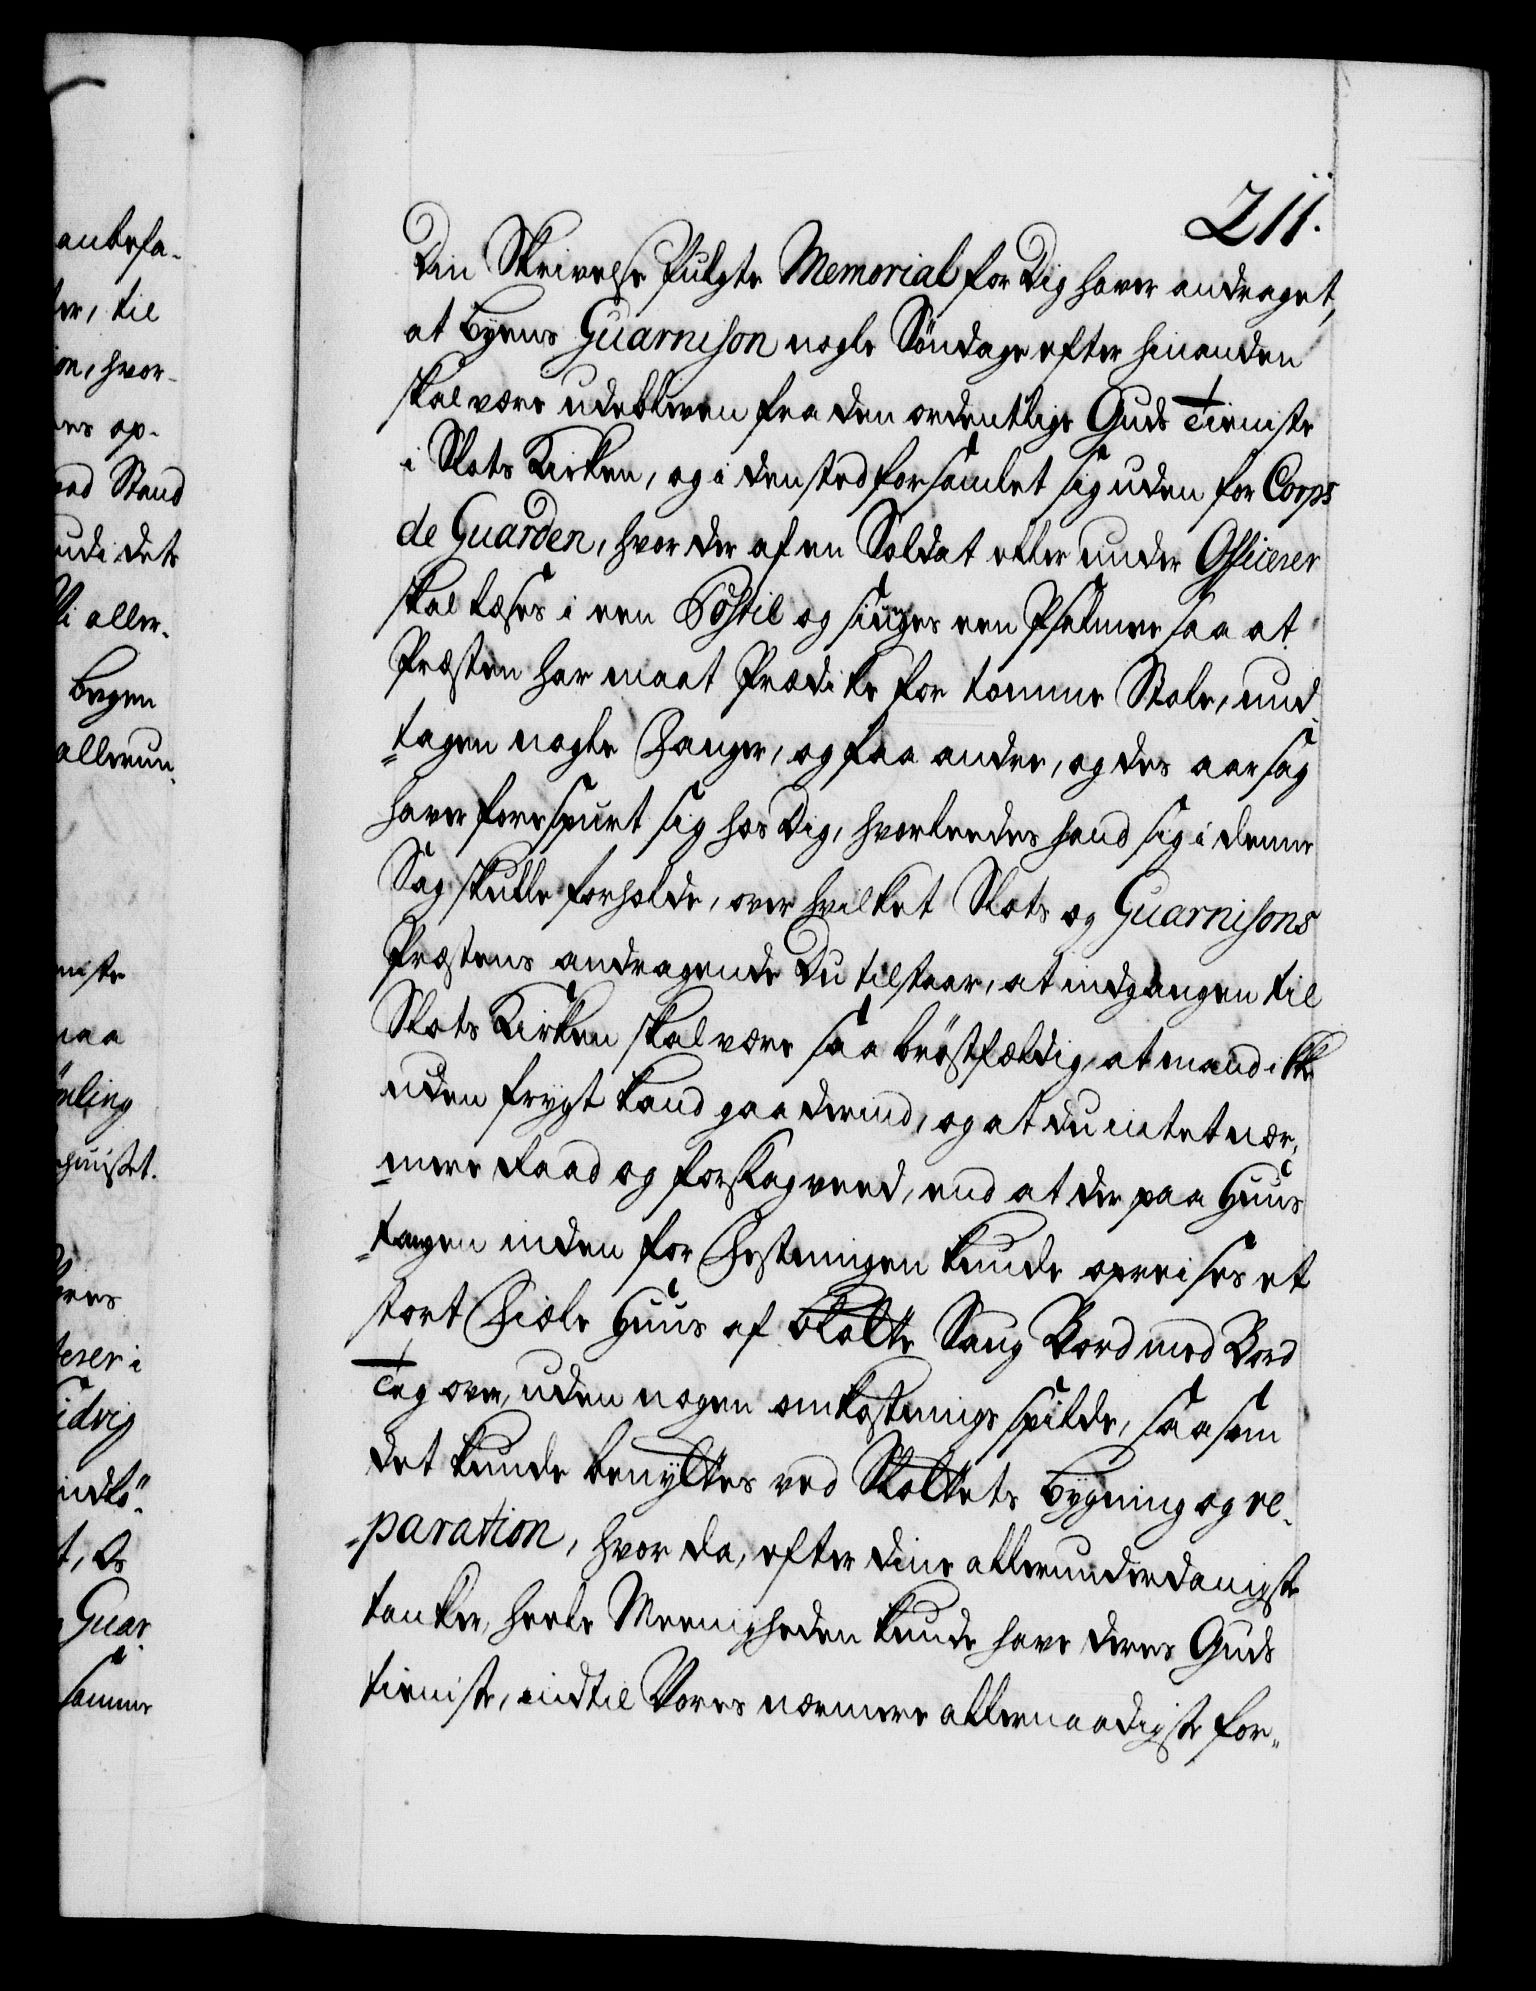 211.
Din Skrivelse fulgte Memorial for Dig haver andraget,
at byens Guarnison nogle Söndage efter hinanden
skal være udebleven fra den ordentlige Guds Tieniste
i Slots Kirken, og i den sted forsamlet sig uden for Corps
de Guarden, hvor der af en Soldat eller under Officerer
skal læses i een Postil og siunges een Psalme saa at
Præsten har maat Prædike for tomme Stole, und¬
„tagen nogle Fanger, og faa andre, og des aarsag
haver forespurt sig hos Dig, hvorleedes hand sig i denne
Sag skulle forholde, over hvilket Slots og Guarnisons
Præstens andragende Du tilstaar, at indgangen til
Slots Kirken skal være saa bröstfældig, at mand ikke
uden frygt kand gaa derind, og at du intet nær¬
„mere Raad og forslag veed, end at der paa Huus
„tangen inden for Festningen kunde opreises et
stort Fiæle Huus af Slette Saug Bord med Bord
Tag over, uden nogen omkostnings spilde, saasom
det kunde benyttes ved Slottets bygning og re¬
„paration, hvor da, efter dine allerunderdanigste
tanker, heele Meenigheden kunde have deres Guds
tieniste, indtil Vores nærmere allernaadigste for„
anbefa¬
til
hvor¬
op¬
Stand
udi dets
Vi aller¬
allerun¬
maa
Guar
samme